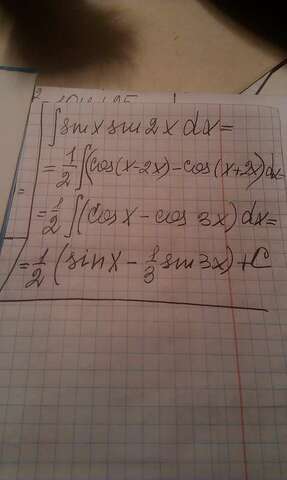 ∫sinx sin2x dx=
=1/2∫(cos(x-2x)-cos(x+2x)dx=
=1/2∫(cosx-cos3x)dx=
=1/2(sinx-1/3sin3x)+C